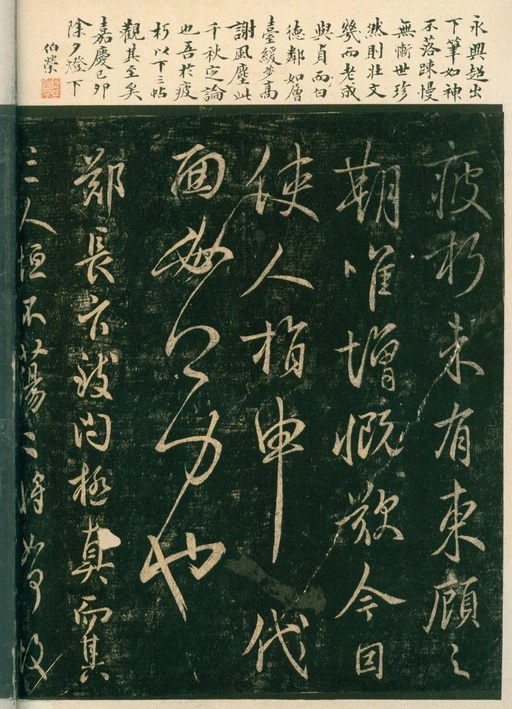 永興超出
下筆如神
不落踈慢
無慚世珍
然則壯文
幾而老成
與貞而白
德鄰如層
臺緩步高
謝風塵此
千秋定論
也吾於疲
朽以下三帖
觀其至矣
嘉慶己卯
除夕燈下
伯榮
疲朽未有東顧之
期唯增慨歎今因
使人指申代
面力也
鄭長官致問極真而其
三人恒不蕩〻將如何故